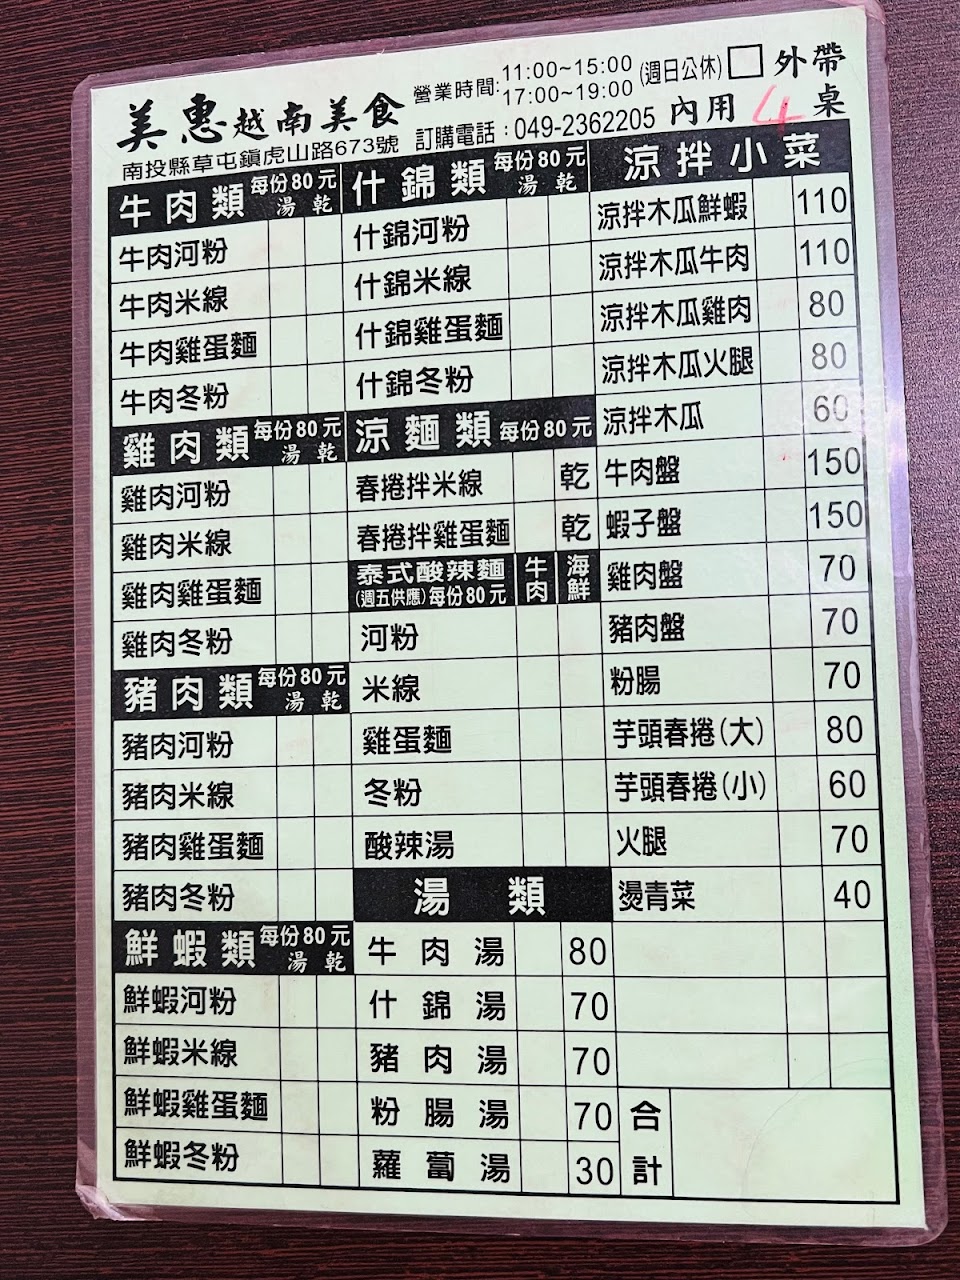 美惠越南美食
南投縣草屯鎮虎山路673號
營業時間:11:00~15:00
17:00~19:00
(週日公休)
訂購電話:049-2362205
外帶
內用 4 桌
牛肉類 每份80元
湯 乾
牛肉河粉
牛肉米線
牛肉雞蛋麵
牛肉冬粉
雞肉類 每份80元
湯 乾
雞肉河粉
雞肉米線
雞肉雞蛋麵
雞肉冬粉
豬肉類 每份80元
湯 乾
豬肉河粉
豬肉米線
豬肉雞蛋麵
豬肉冬粉
鮮蝦類 每份80元
湯 乾
鮮蝦河粉
鮮蝦米線
鮮蝦雞蛋麵
鮮蝦冬粉
什錦類 每份80元
湯 乾
什錦河粉
什錦米線
什錦雞蛋麵
什錦冬粉
涼麵類 每份80元
春捲拌米線 乾
春捲拌雞蛋麵 乾
泰式酸辣麵 牛肉 海鮮
(週五供應)每份80元
河粉
米線
雞蛋麵
冬粉
酸辣湯
湯類
牛肉湯 80
什錦湯 70
豬肉湯 70
粉腸湯 70
蘿蔔湯 30
涼拌小菜
涼拌木瓜鮮蝦 110
涼拌木瓜牛肉 110
涼拌木瓜雞肉 80
涼拌木瓜火腿 80
涼拌木瓜 60
牛肉盤 150
蝦子盤 150
雞肉盤 70
豬肉盤 70
粉腸 70
芋頭春捲(大) 80
芋頭春捲(小) 60
火腿 70
燙青菜 40
合計